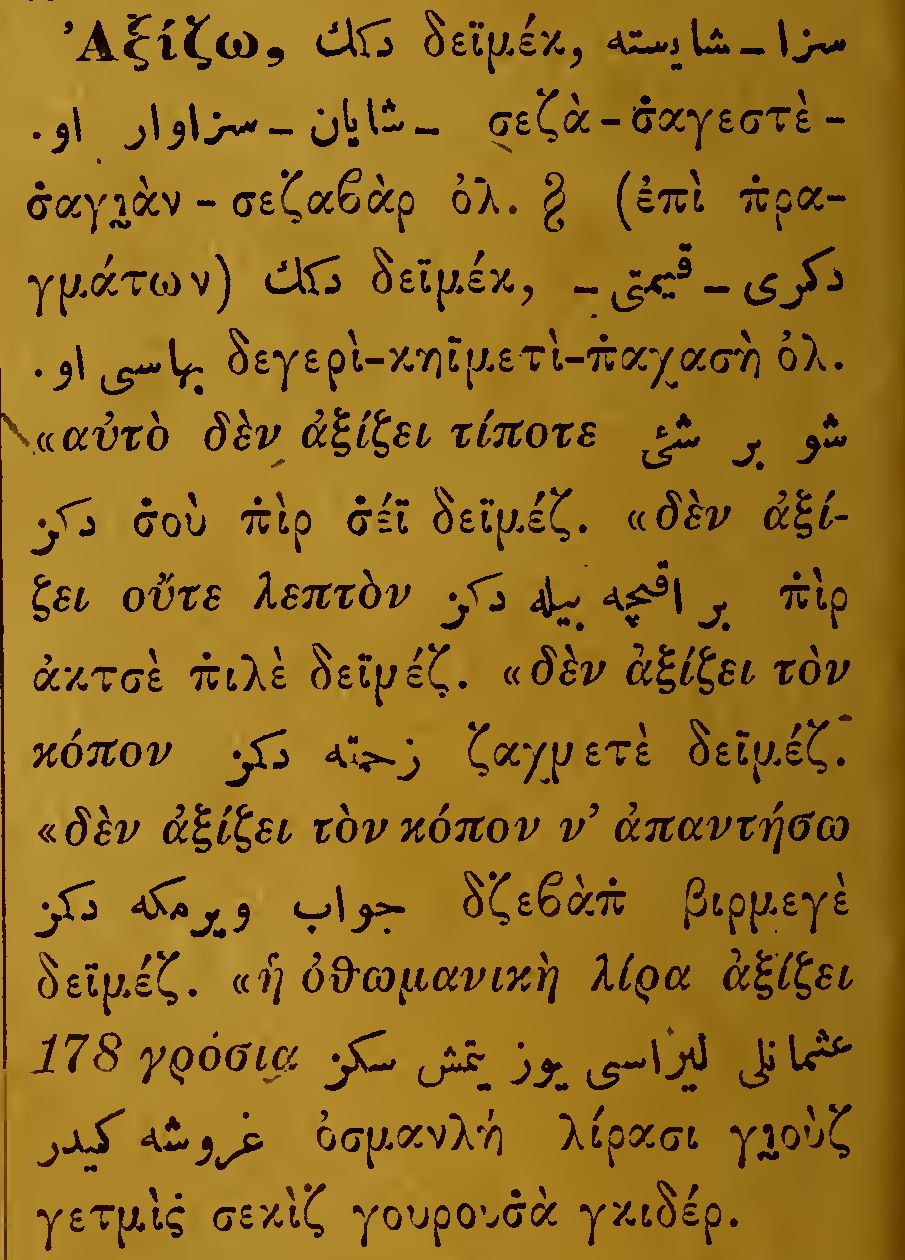 Ἀξίζω, دكمك δεϊμέκ, سزا ـ شایسته
ـ شایان ـ سزاوار او. σεζὰ-σ̇αγεστὲ-
σ̇αγιὰν-σεζαβὰρ ὀλ. § (ἐπὶ πρα-
γμάτων) دكمك δεϊμέκ, دكری ـ قیمتی ـ
بهاسی او. δεγερὶ-κηϊμετὶ-π̇αχασὴ ὀλ.
«αὐτὸ δὲν ἀξίζει τίποτε شو بر شیئ
دكمز σ̇οὺ π̇ὶρ σ̇έϊ δεϊμέζ. «δὲν ἀξί-
ζει οὔτε λεπτὸν بر اقچه بیله دكمز π̇ὶρ
ἀκτσὲ π̇ιλὲ δεϊμέζ. «δὲν ἀξίζει τὸν
κόπον زحمته دكمز ζαχμετὲ δεϊμέζ.
«δὲν ἀξίζει τὸν κόπον ν’ ἀπαντήσω
جواب ویرمكه دكمز δζεβὰπ̇ βιρμεγὲ
δεϊμέζ. «ἡ ὀθωμανικὴ λίρα ἀξίζει
178 γρόσια عثمانلی لیراسی یوز یتمش سكز
غروشه كیدر ὀσμανλὴ λίρασι γιοὺζ
γετμὶς̇ σεκὶζ γουρουσ̇ὰ γκιδέρ.